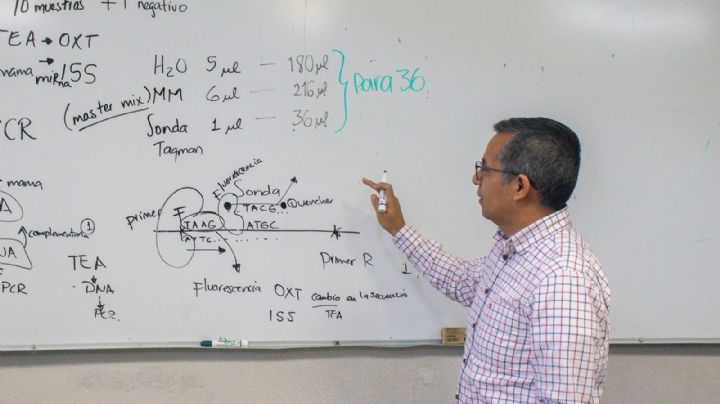 10 muestras + 1 negativo
TEA → OXT
mama miRNA 15S
(master mix)
CR
H2O 5 µl — 180 µl
MM 6 µl — 216 µl
Sonda 1 µl — 36 µl
Taqman
} Para 36
mama
A
complementaria ①
UA
PCR
TEA
DNA
PCR
primer F
TAAG
Fluorescencia
Sonda
TACG...
ATGC
Quencher
Primer R
1.
Fluorescencia OXT cambio en la secuencia
ISS TEA